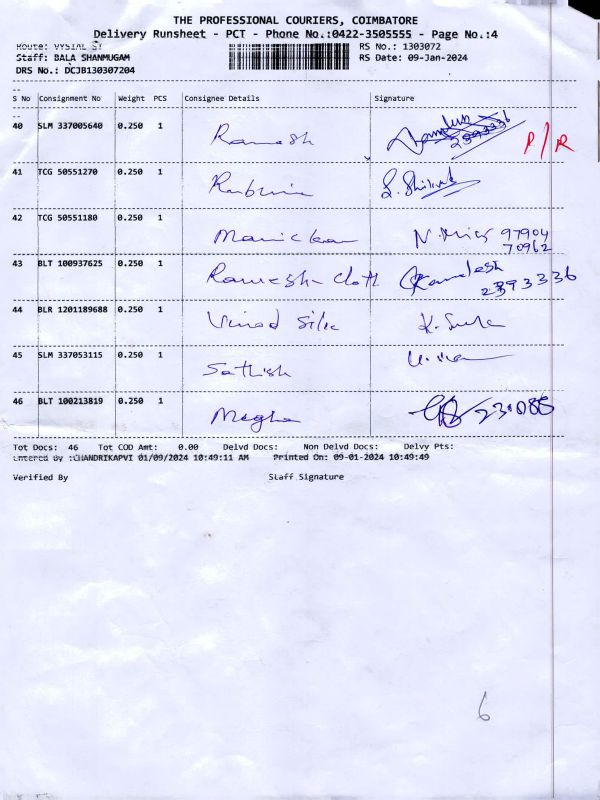 THE PROFESSIONAL COURIERS, COIMBATORE
Delivery Runsheet - PCT - Phone No.:0422-3505555 - Page No.:4
Route: VYSIAL ST RS No.: 1303072
Staff: BALA SHANMUGAM RS Date: 09-Jan-2024
DRS No.: DCJB130307204
S No Consignment No Weight PCS Consignee Details Signature
40 SLM 337005640 0.250 1 Ramesh P/R
41 TCG 50551270 0.250 1
42 TCG 50551180 0.250 1 97904
70962
43 BLT 100937625 0.250 1 Ramesh Cloth Kamalesh
2393336
44 BLR 1201189688 0.250 1 Vinod Silk
45 SLM 337053115 0.250 1 Sathish
46 BLT 100213819 0.250 1 Megha
Tot Docs: 46 Tot COD Amt: 0.00 Delvd Docs: Non Delvd Docs: Delvy Pts:
Entered By :CHANDRIKAPVI 01/09/2024 10:49:11 AM Printed On: 09-01-2024 10:49:49
Verified By Staff Signature
6